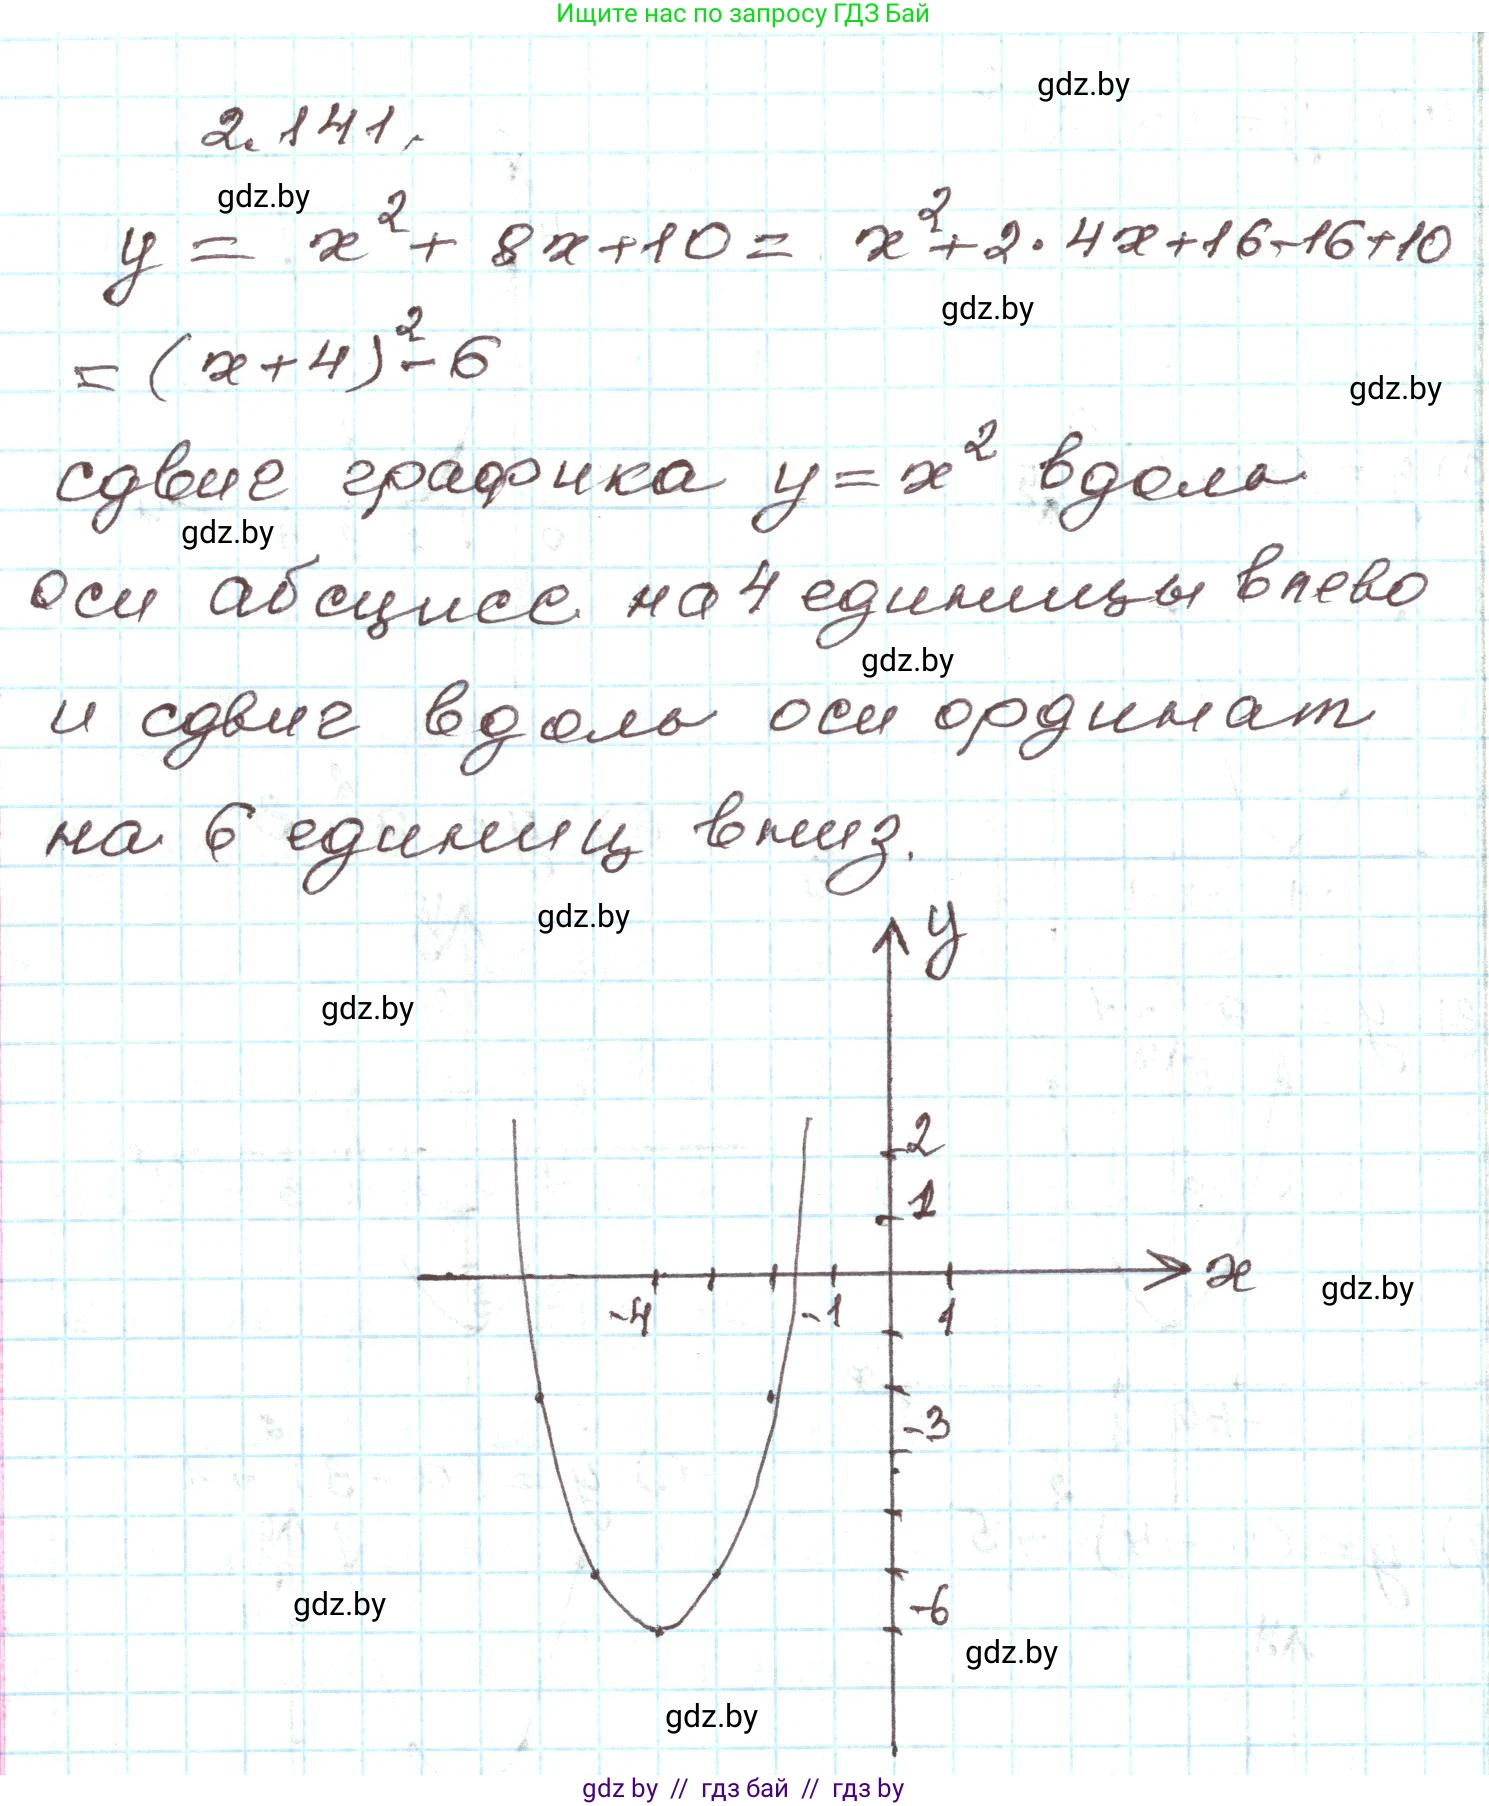 Ищите нас по запросу ГДЗ Бай
gdz.by
2.141.
gdz.by
y = x² + 8x+10 = x²+2·4x+16-16+10
gdz.by
= (x+4)²-6
gdz.by
сдвиг графика y=x² вдоль
gdz.by
оси абсцисс на 4 единицы влево
gdz.by
и сдвиг вдоль оси ординат
на 6 единиц вниз.
gdz.by
y
gdz.by
2
1
x
gdz.by
-4 -1 1
-3
-6
gdz.by
gdz.by
gdz.by
gdz by // гдз бай // гдз by